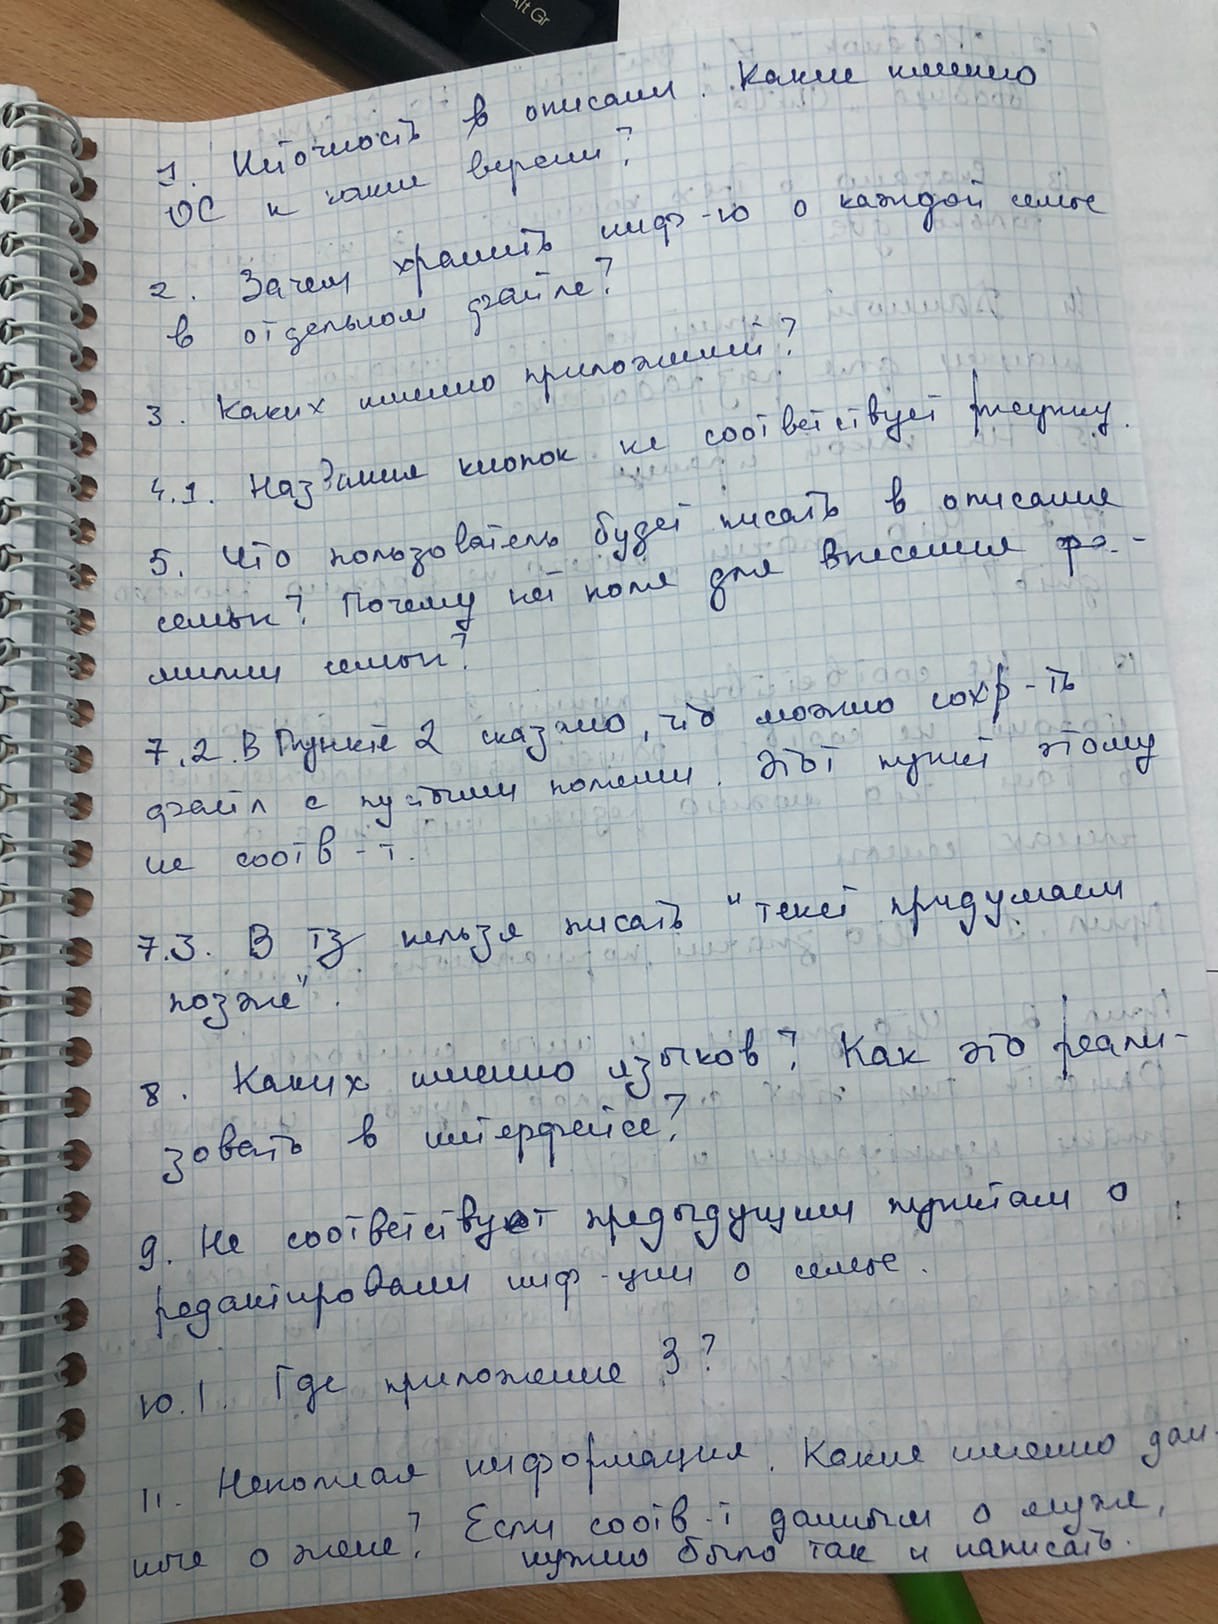 Alt Gr
1. Неточность в описании. Какие именно
ОС и какие версии?
2. Зачем хранить инф-ю о каждой семье
в отдельном файле?
3. Каких именно приложений?
4.1. Названия кнопок не соответствует рисунку.
5. Что пользователь будет писать в описание
семьи? Почему нет поля для внесения фа-
милии семьи?
7.2. В Пункте 2 сказано, что можно сохр-ть
файл с пустыми полями. Этот пункт этому
не соотв-т.
7.3. В ТЗ нельзя писать "текст придумаем
позже".
8. Каких именно языков? Как это реали-
зовать в интерфейсе?
9. Не соответствует предыдущим пунктам о
редактировании инф-ции о семье.
10.1. Где приложение 3?
11. Неполная информация. Какие именно дан-
ные о жене? Если соотв-т данным о муже,
нужно было так и написать.